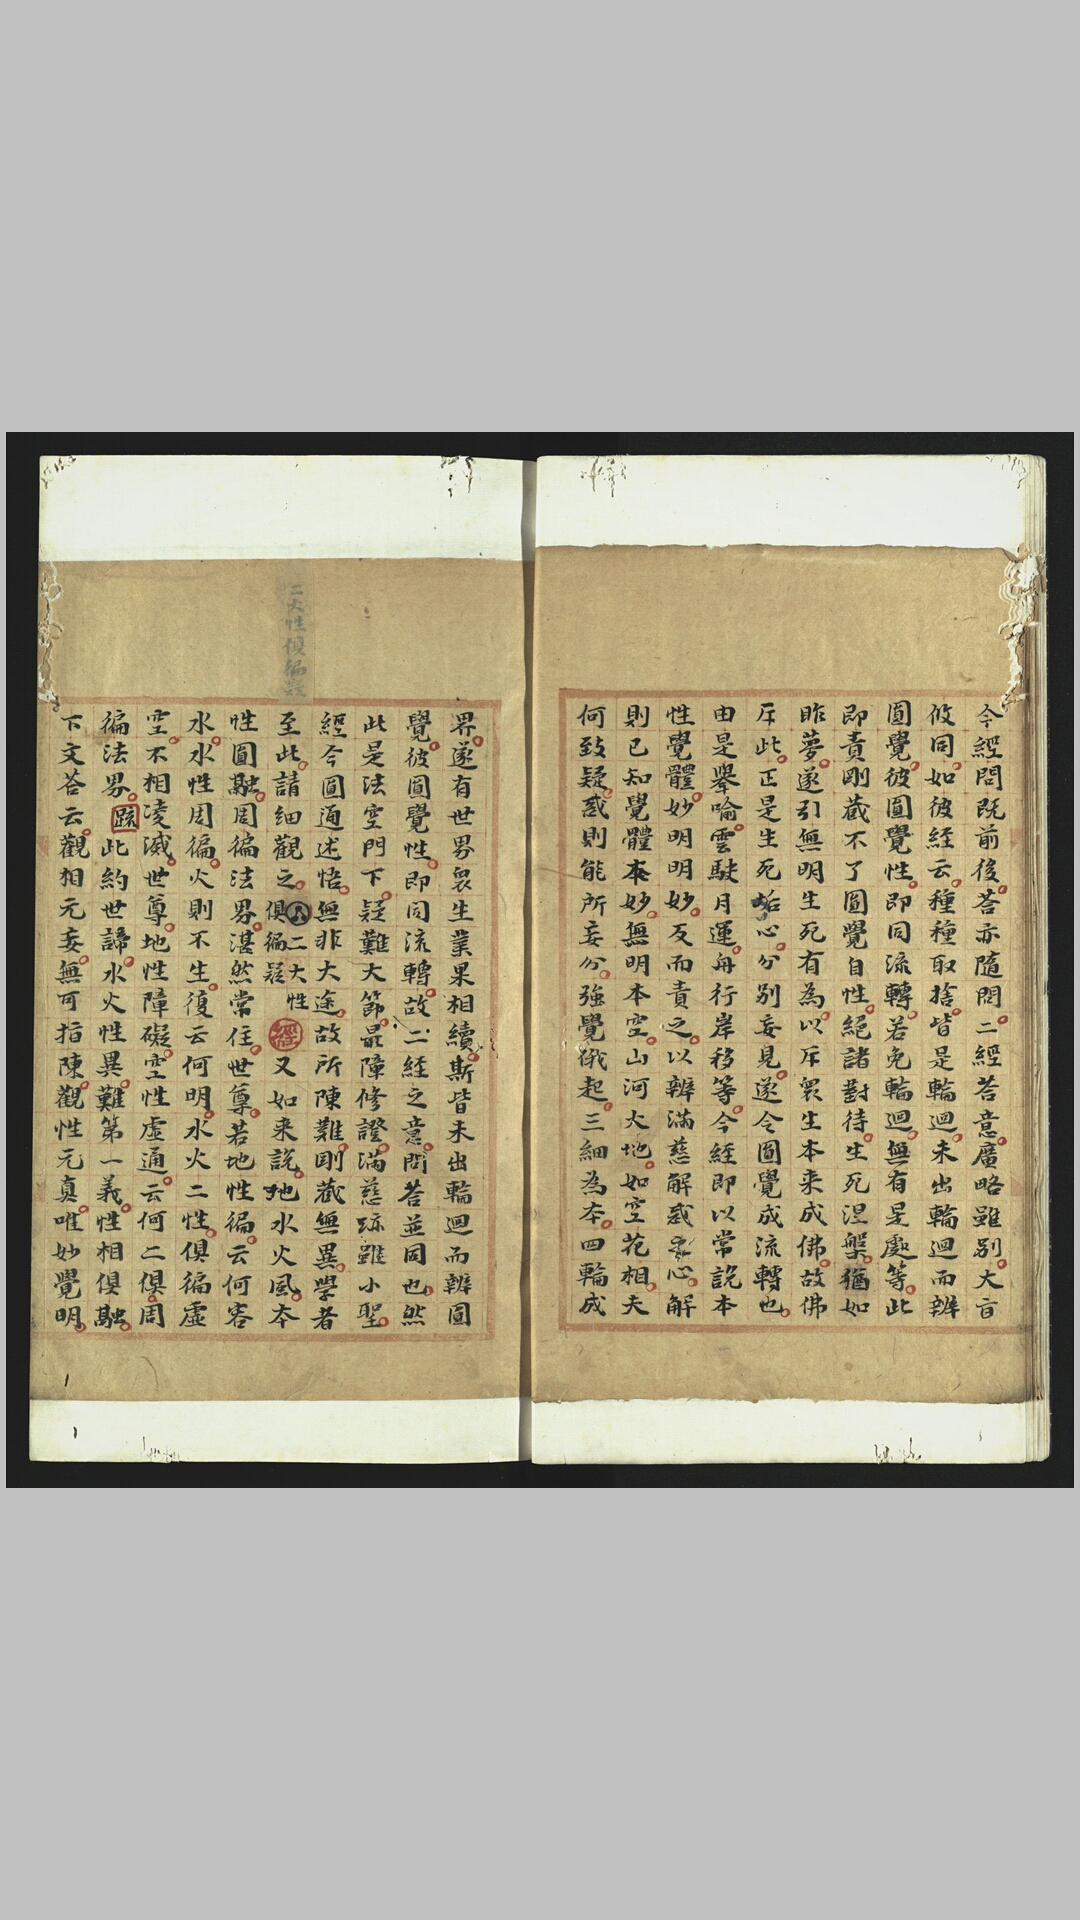 今經問既前後荅亦隨問二經荅意廣略雖別大㫖
攸同如彼經云種種取捨皆是輪迴未出輪迴而辨
圓覺彼圓覺性即同流轉若免輪迴無有是處等此
即責剛藏不了圓覺自性絕諸對待生死涅槃猶如
昨夢遂引無明生死有為以斥眾生本来成佛故佛
斥此正是生死垢心分別妄見遂令圓覺成流轉也
由是舉喻雲駛月運舟行岸移等今經即以常說本
性覺體妙明明妙反而責之以辨滿慈解惑心解
則已知覺體本妙無明本空山河大地如空花相夫
何致疑惑則能所妄分強覺俄起三細為本四輪成
界遂有世界眾生業果相續斯皆未出輪迴而辨圓
覺彼圓覺性即同流轉故二經之意問荅並同也然
此是法空門下疑難大節最障修證滿慈跡雖小聖
經今圓通述悟無非大途故所陳難剛藏無異學者
至此請細觀之八二大性俱徧疑經又如来說地水火風本
性圓融周徧法界湛然常住世尊若地性徧云何容
水水性周徧火則不生復云何明水火二性俱徧虛
空不相凌滅世尊地性障礙空性虛通云何二俱周
徧法界疏此約世諦水火性異難第一義性相俱融
下文荅云觀相元妄無可指陳觀性元真唯妙覺明
二大性俱徧疑